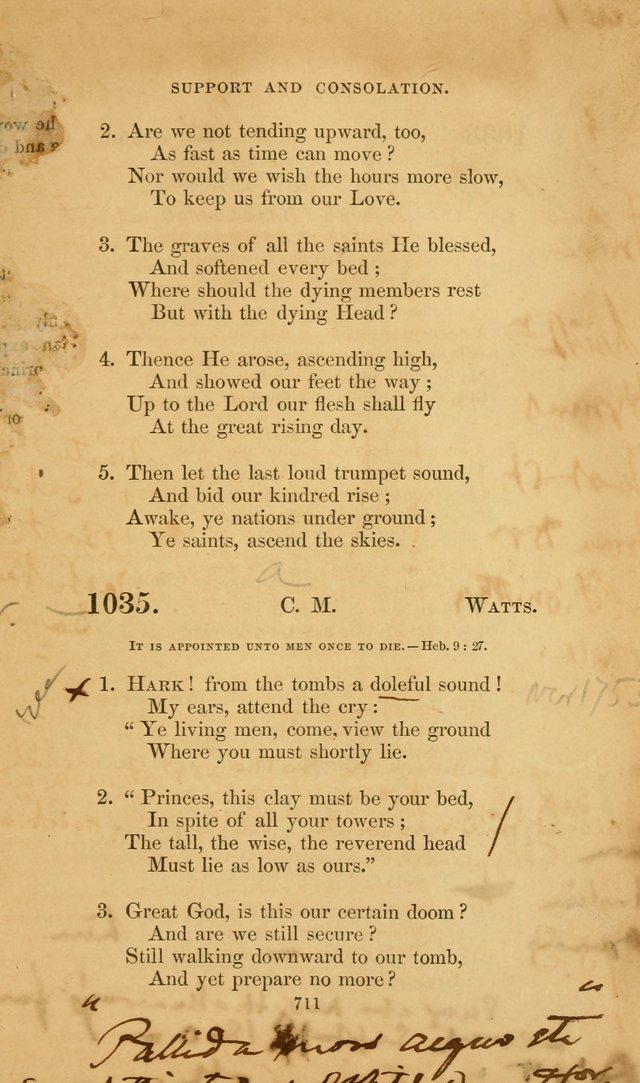 SUPPORT AND CONSOLATION.
2. Are we not tending upward, too,
As fast as time can move?
Nor would we wish the hours more slow,
To keep us from our Love.
3. The graves of all the saints He blessed,
And softened every bed;
Where should the dying members rest
But with the dying Head?
4. Thence He arose, ascending high,
And showed our feet the way;
Up to the Lord our flesh shall fly
At the great rising day.
5. Then let the last loud trumpet sound,
And bid our kindred rise;
Awake, ye nations under ground;
Ye saints, ascend the skies.
a
1035. C. M. WATTS.
IT IS APPOINTED UNTO MEN ONCE TO DIE.—Heb. 9: 27.
1. HARK! from the tombs a doleful sound!
My ears, attend the cry:
"Ye living men, come, view the ground
Where you must shortly lie.
2. "Princes, this clay must be your bed,
In spite of all your towers;
The tall, the wise, the reverend head
Must lie as low as ours."
3. Great God, is this our certain doom?
And are we still secure?
Still walking downward to our tomb,
And yet prepare no more?
711
"Pallida mors aequo